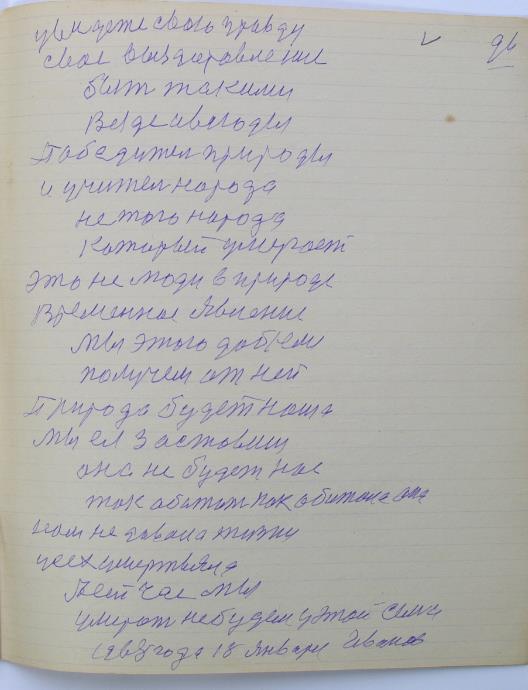 96
увидете свою правду
свое выздоровление
быт такими
Везде и всегоды
Победител природы
и учител народа
не того народа
каторый умерает
Это не люди в природе
Временное явление
Мы этого добем
получем от ней
Природа будет наша
мы ея заставим
она не будет нас
так обитат как обитала она
нам не давала жизни
усех умертвяла
Сей час мы
умират не будем у этой семи
года 18 Января Иванов